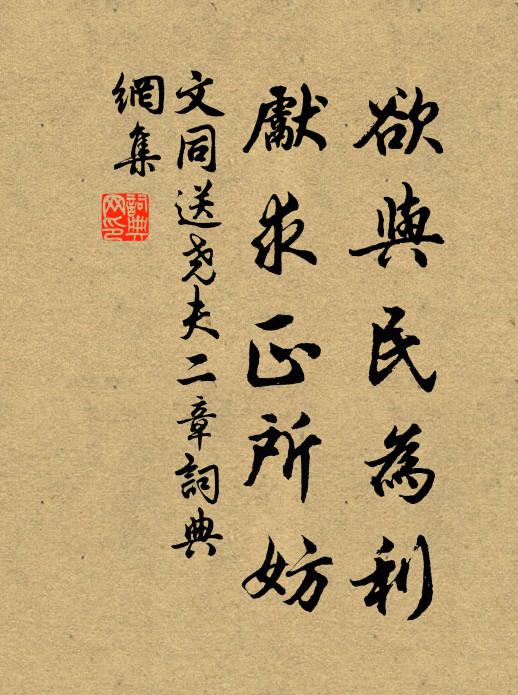 欲與民為利
獻求正所妨
文同送堯夫二章詞典
網集
詞典
网印